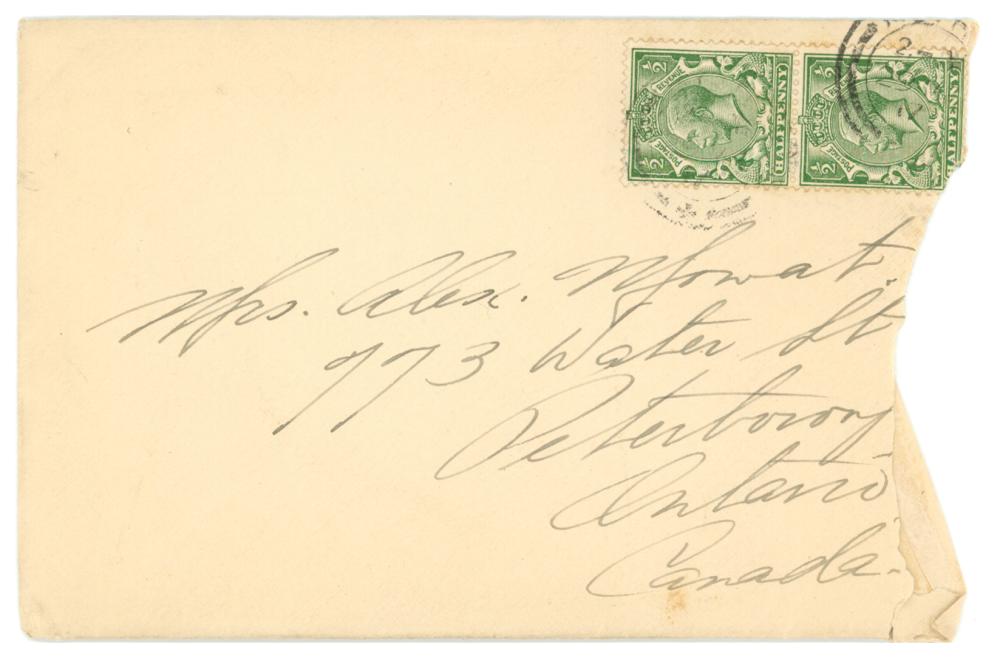 ½ POSTAGE REVENUE ½
HALFPENNY
½ POSTAGE ½
HALFPENNY
2
Mrs. Alex. Mowat.
773 Water St
Peterboro
Ontario
Canada.